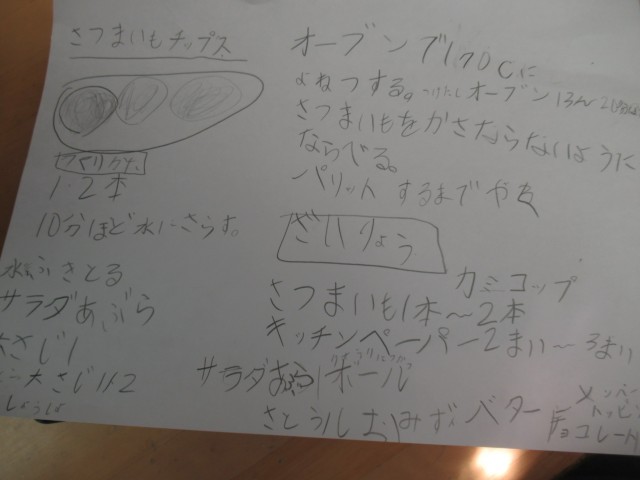 さつまいもチップス
つくりかた
1.2本
10分ほど水にさらす。
水をふきとる
サラダあぶら
大さじ1
大さじ1/2
オーブンで170Cに
よねつする。つけたしオーブン
さつまいもをかさならないように
ならべる。
パリットするまでやき
ざいりょう
カミコップ
さつまいも1本〜2本
キッチンペーパー2まい〜3まい
サラダあぶら ボール
さとう しお みず バター
チョコレート